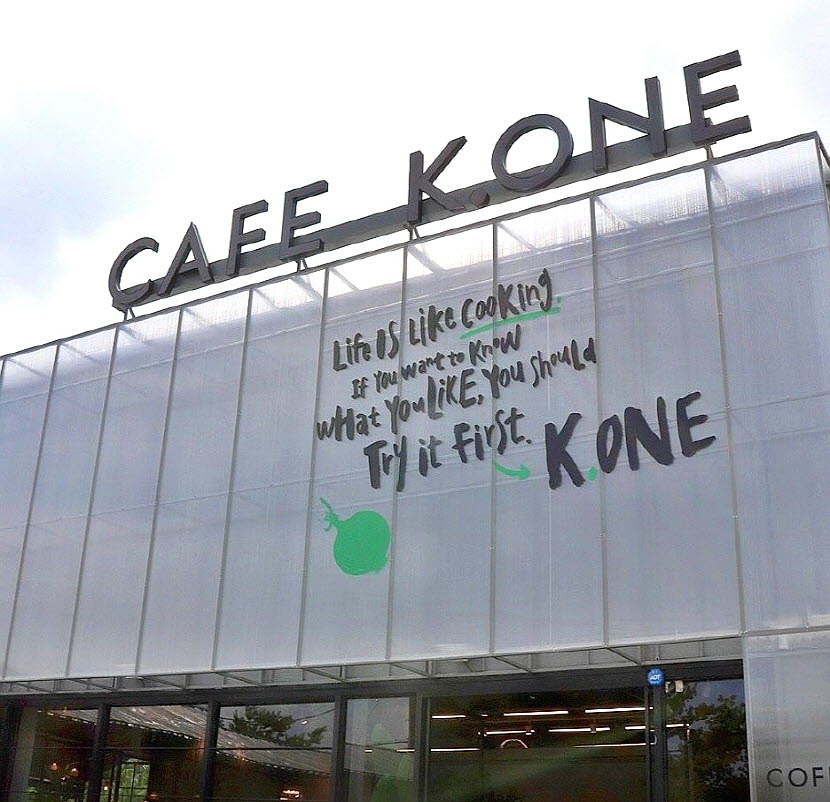 CAFE K.ONE
Life is Like cooking.
If You want to Know
what You LIKE, You should
Try it first. K.ONE
ADT